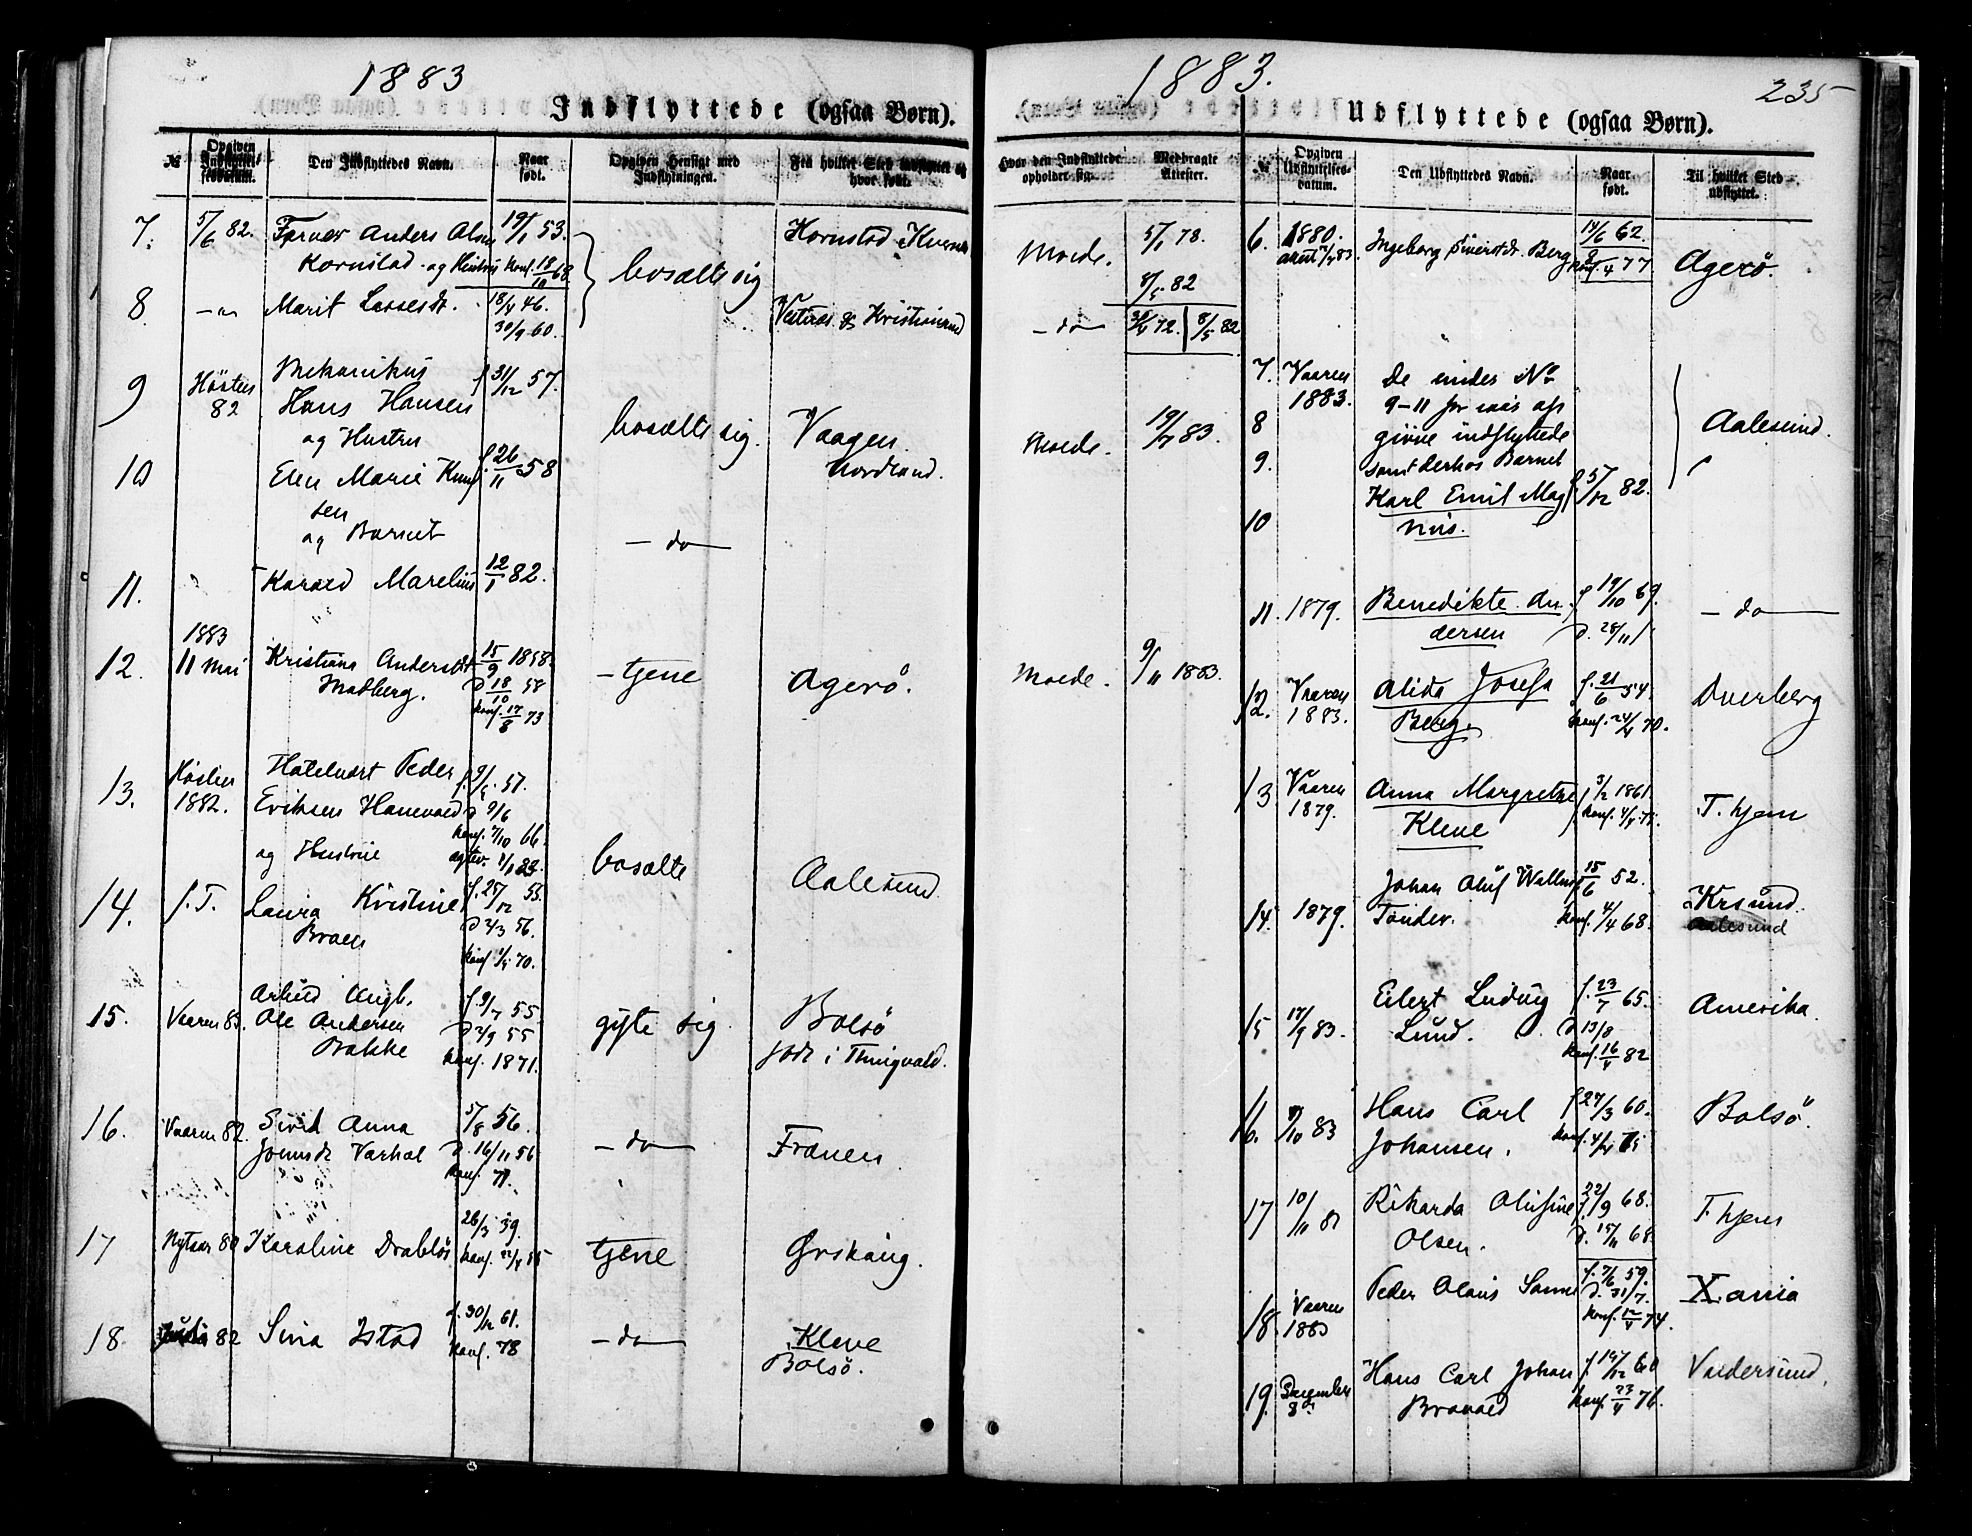 1883
Indflyttede (ogsaa Børn).
№
Opgiven Indflyttelsesdatum.
Den Indflyttedes Navn.
Naar født.
Opgiven Hensigt med Indflytningen.
Fra hvilket Sted indflyttet og hvor født.
7. 5/6 82. Farver Anders Olsen 19/1 53. Kornstad Kvernæs
Kornstad og Hustru konf. 18/10 68 bosætte sig
8. -"- Marit Lassesdt. 18/4 46.
30/9 60.
9 Høsten 82 Mekanikus f 31/12 57.
Hans Hansen bosætte sig. Vaagen
og Hustru Nordland.
10 Elen Marie Knud f. 26/11 58
sen
og Barnet - do -
11. Harald Marelius 12/1 82.
1883
12. 11 Mai Kristiana Andersdt 15/9 1858. - tjene Agerø.
Madberg. D 18/10 58
konf. 17/8 73
13. Høsten 1882. Hotelvært Peder
Eriksen Hanevold D 9/6
konf. 7/10 66.
og Hustrue bosætte Aalesund
14. s. T. Laura Kristine f. 25/12 55.
Braen D 2/3 56.
konf. 70.
15. Vaaren 83. Arbeid Ungk. f. 9/7 55
Ole Andersen D 2/9 55 gifte sig Bolsø
Bakke konf. 1871. født i Thingvold.
16. Vaaren 82. Sivert Anna 5/8 56.
Varhol D. 16/11 56 - do - Frænen
konf. 71.
17 Nytaar 80 Karoline Drabløs 26/3 39.
konf. tjene Ørskoug.
18. 82 Sina Istad f. 30/12 61. - do - Kleve
konf. 78 Bolsø.
1883. 235
Udflyttede (ogsaa Børn).
Hvor den Indflyttede opholder sig.
Medbragte Attester.
№
Opgiven Udflyttelsesdatum.
Den Udflyttedes Navn.
Naar født.
Til hvilket Sted udflyttet.
Molde. 5/1 78.
8/5 82
- do - 72. 8/5 82
Molde. 19/7 83.
Molde. 9/11 1883.
6. 1880. Ingeborg Sivertsdt. Berg 14/6 62. Agerø.
konf. 8/4 77
7. Vaaren 1883. De under No
9-11 for indeværende
8 givne indflyttede Aalesund.
9. samt derhos Barnet
Karl Emil Mag f 5/12 82.
10 nus.
11. 1879. Benedikte An f. 19/10 69. - do -
dersen D. 28/11
12. Vaaren 1883. Alida Josefa f. 21/6 54. Dverberg
Berg. konf. 24/4 70.
13 Vaaren 1879. Anna Margrethe f 3/2 1861. T.hjem
Kleve
14. 1879. Johan Oluf Wallum 15/6 52. Krsund.
Tønder. konf. 4/4 68. Aalesund
15 17/9 83. Eilert Ludvig f. 23/7 65. Amerika.
Lund. D 13/8
konf. 16/4 82
16. 9/10 83 Hans Carl f 27/3 60. Bolsø.
Johansen. konf. 4/4 75
17 10/11 81 Rikarda Olufine f. 22/9 68. T.hjem
Olsen. D. 15/11 68.
18. Vaaren 1883 Peder Olaus Sanne f. 7/6 59. Xania
D. 31/7.
konf. 12/4 74.
19. December 83 Hans Carl Johan f. 19/12 60 Valdersund.
Bravold konf. 23/4 76.